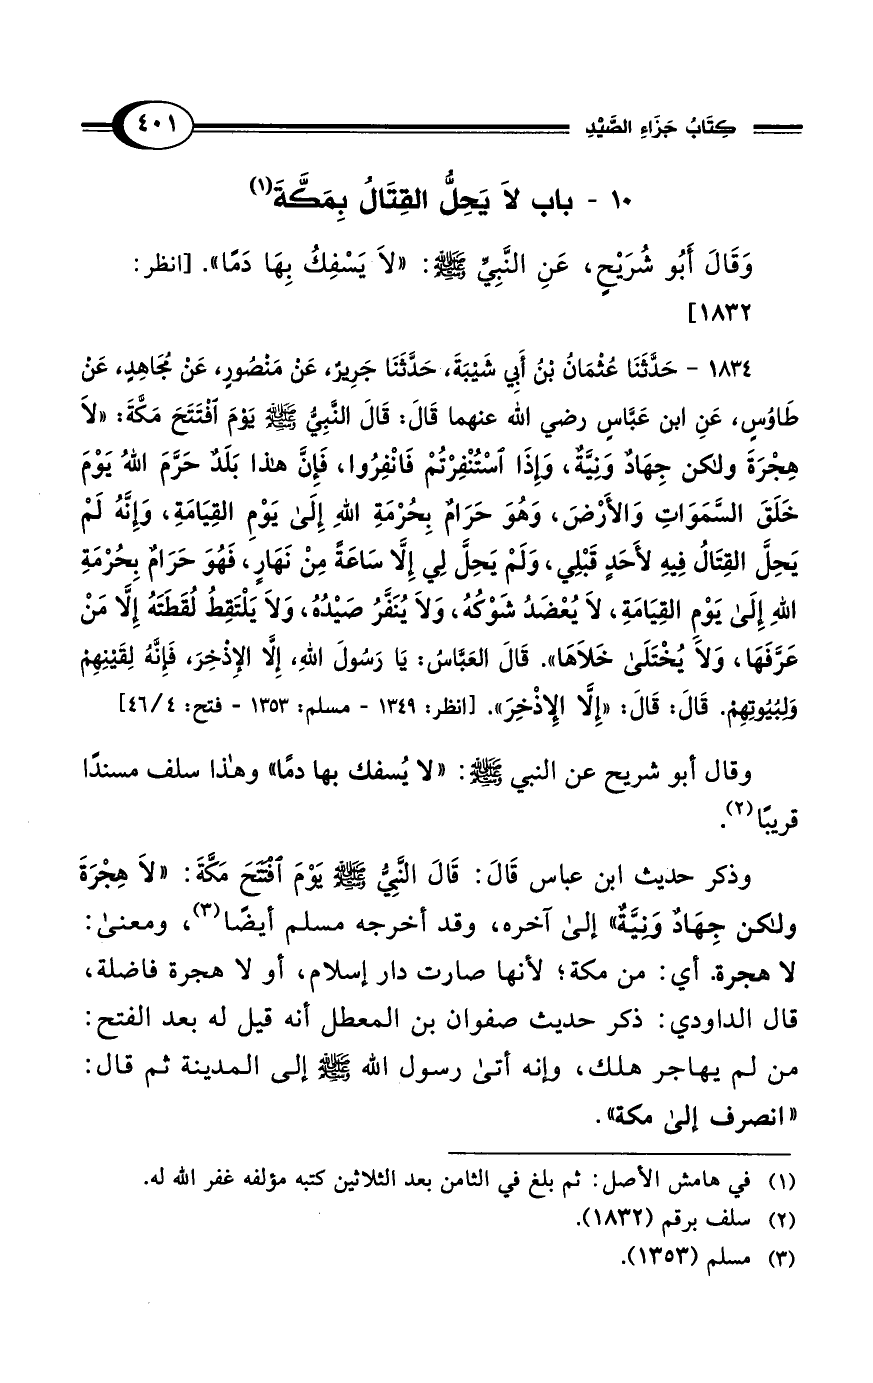 كِتَابُ جَزَاءِ الصَّيْدِ ٤٠١
١٠ - باب لاَ يَحِلُّ القِتَالُ بِمَكَّةَ(١)
وَقَالَ أَبُو شُرَيْحٍ، عَنِ النَّبِيِّ ﷺ: «لاَ يَسْفِكُ بِهَا دَمًا». [انظر:
١٨٣٢]
١٨٣٤ - حَدَّثَنَا عُثْمَانُ بْنُ أَبِي شَيْبَةَ، حَدَّثَنَا جَرِيرٌ، عَنْ مَنْصُورٍ، عَنْ مُجَاهِدٍ، عَنْ
طَاوُسٍ، عَنِ ابن عَبَّاسٍ رضي الله عنهما قَالَ: قَالَ النَّبِيُّ ﷺ يَوْمَ ٱفْتَتَحَ مَكَّةَ: «لاَ
هِجْرَةَ ولكن جِهَادٌ وَنِيَّةٌ، وَإِذَا ٱسْتُنْفِرْتُمْ فَانْفِرُوا، فَإِنَّ هذا بَلَدٌ حَرَّمَ اللهُ يَوْمَ
خَلَقَ السَّمَوَاتِ وَالأَرْضَ، وَهُوَ حَرَامٌ بِحُرْمَةِ اللهِ إِلَىٰ يَوْمِ القِيَامَةِ، وَإِنَّهُ لَمْ
يَحِلَّ القِتَالُ فِيهِ لأَحَدٍ قَبْلِي، وَلَمْ يَحِلَّ لِي إِلَّا سَاعَةً مِنْ نَهَارٍ، فَهُوَ حَرَامٌ بِحُرْمَةِ
اللهِ إِلَىٰ يَوْمِ القِيَامَةِ، لاَ يُعْضَدُ شَوْكُهُ، وَلاَ يُنَفَّرُ صَيْدُهُ، وَلاَ يَلْتَقِطُ لُقَطَتَهُ إِلَّا مَنْ
عَرَّفَهَا، وَلاَ يُخْتَلَىٰ خَلاَهَا». قَالَ العَبَّاسُ: يَا رَسُولَ اللهِ، إِلَّا الإِذْخِرَ، فَإِنَّهُ لِقَيْنِهِمْ
وَلِبُيُوتِهِمْ. قَالَ: قَالَ: «إِلَّا الإِذْخِرَ». [انظر: ١٣٤٩ - مسلم: ١٣٥٣ - فتح: ٤/ ٤٦]
وقال أبو شريح عن النبي ﷺ: «لا يُسفك بها دمًا» وهذا سلف مسندًا
قريبًا(٢).
وذكر حديث ابن عباس قَالَ: قَالَ النَّبِيُّ ﷺ يَوْمَ ٱفْتَتَحَ مَكَّةَ: «لاَ هِجْرَةَ
ولكن جِهَادٌ وَنِيَّةٌ» إلىٰ آخره، وقد أخرجه مسلم أيضًا(٣)، ومعنىٰ:
لا هجرة. أي: من مكة؛ لأنها صارت دار إسلام، أو لا هجرة فاضلة،
قال الداودي: ذكر حديث صفوان بن المعطل أنه قيل له بعد الفتح:
من لم يهاجر هلك، وإنه أتىٰ رسول الله ﷺ إلى المدينة ثم قال:
«انصرف إلىٰ مكة».
(١) في هامش الأصل: ثم بلغ في الثامن بعد الثلاثين كتبه مؤلفه غفر الله له.
(٢) سلف برقم (١٨٣٢).
(٣) مسلم (١٣٥٣).